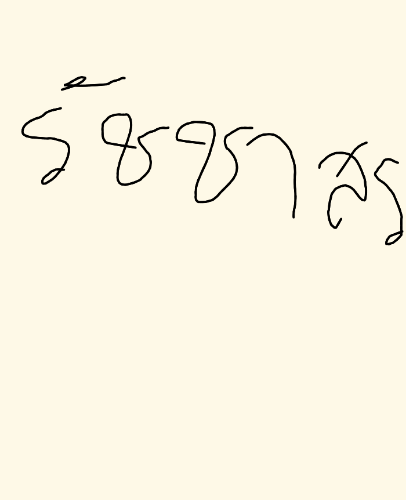 รัชชาสร